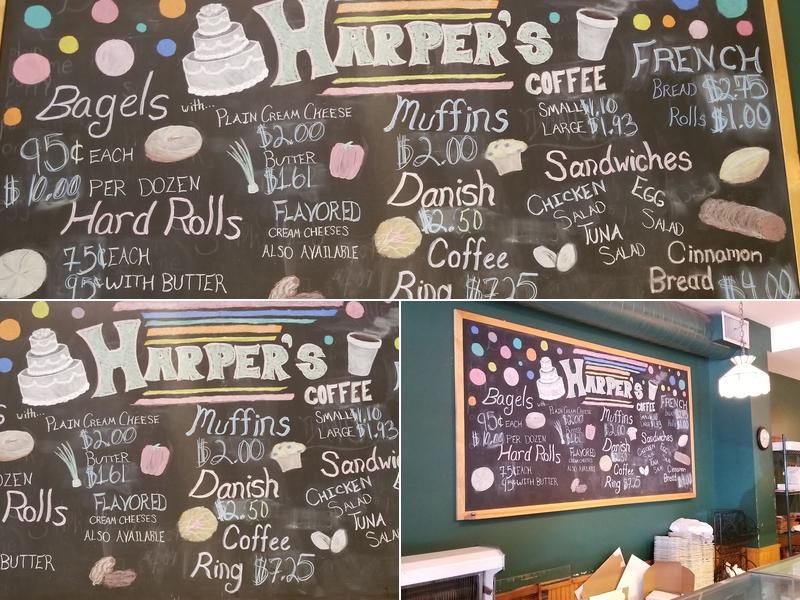 HARPER'S
COFFEE
SMALL $1.10
LARGE $1.93
FRENCH
BREAD $2.75
Rolls $1.00
Bagels with...
95¢ EACH
$10.00 PER DOZEN
PLAIN CREAM CHEESE
$2.00
BUTTER
$1.61
FLAVORED
CREAM CHEESES
ALSO AVAILABLE
Hard Rolls
75¢ EACH
95¢ WITH BUTTER
Muffins
$2.00
Danish
$2.50
Coffee
Ring $7.25
Sandwiches
CHICKEN
SALAD
EGG
SALAD
TUNA
SALAD
Cinnamon
Bread $4.00
HARPER'S
COFFEE
with...
PLAIN CREAM CHEESE
$2.00
BUTTER
$1.61
FLAVORED
CREAM CHEESES
ALSO AVAILABLE
OZEN
Rolls
BUTTER
Muffins
$2.00
Danish
$2.50
Coffee
Ring $7.25
SMALL $1.10
LARGE $1.93
Sandwi
CHICKEN
SALAD
TUNA
SALA
HARPER'S
COFFEE
FRENCH
Bagels
95¢ EACH
$10.00 PER DOZEN
Hard Rolls
75¢ EACH
95¢ WITH BUTTER
Muffins
$2.00
Danish
$2.50
Coffee
Ring $7.25
Sandwiches
Cinnamon
Bread